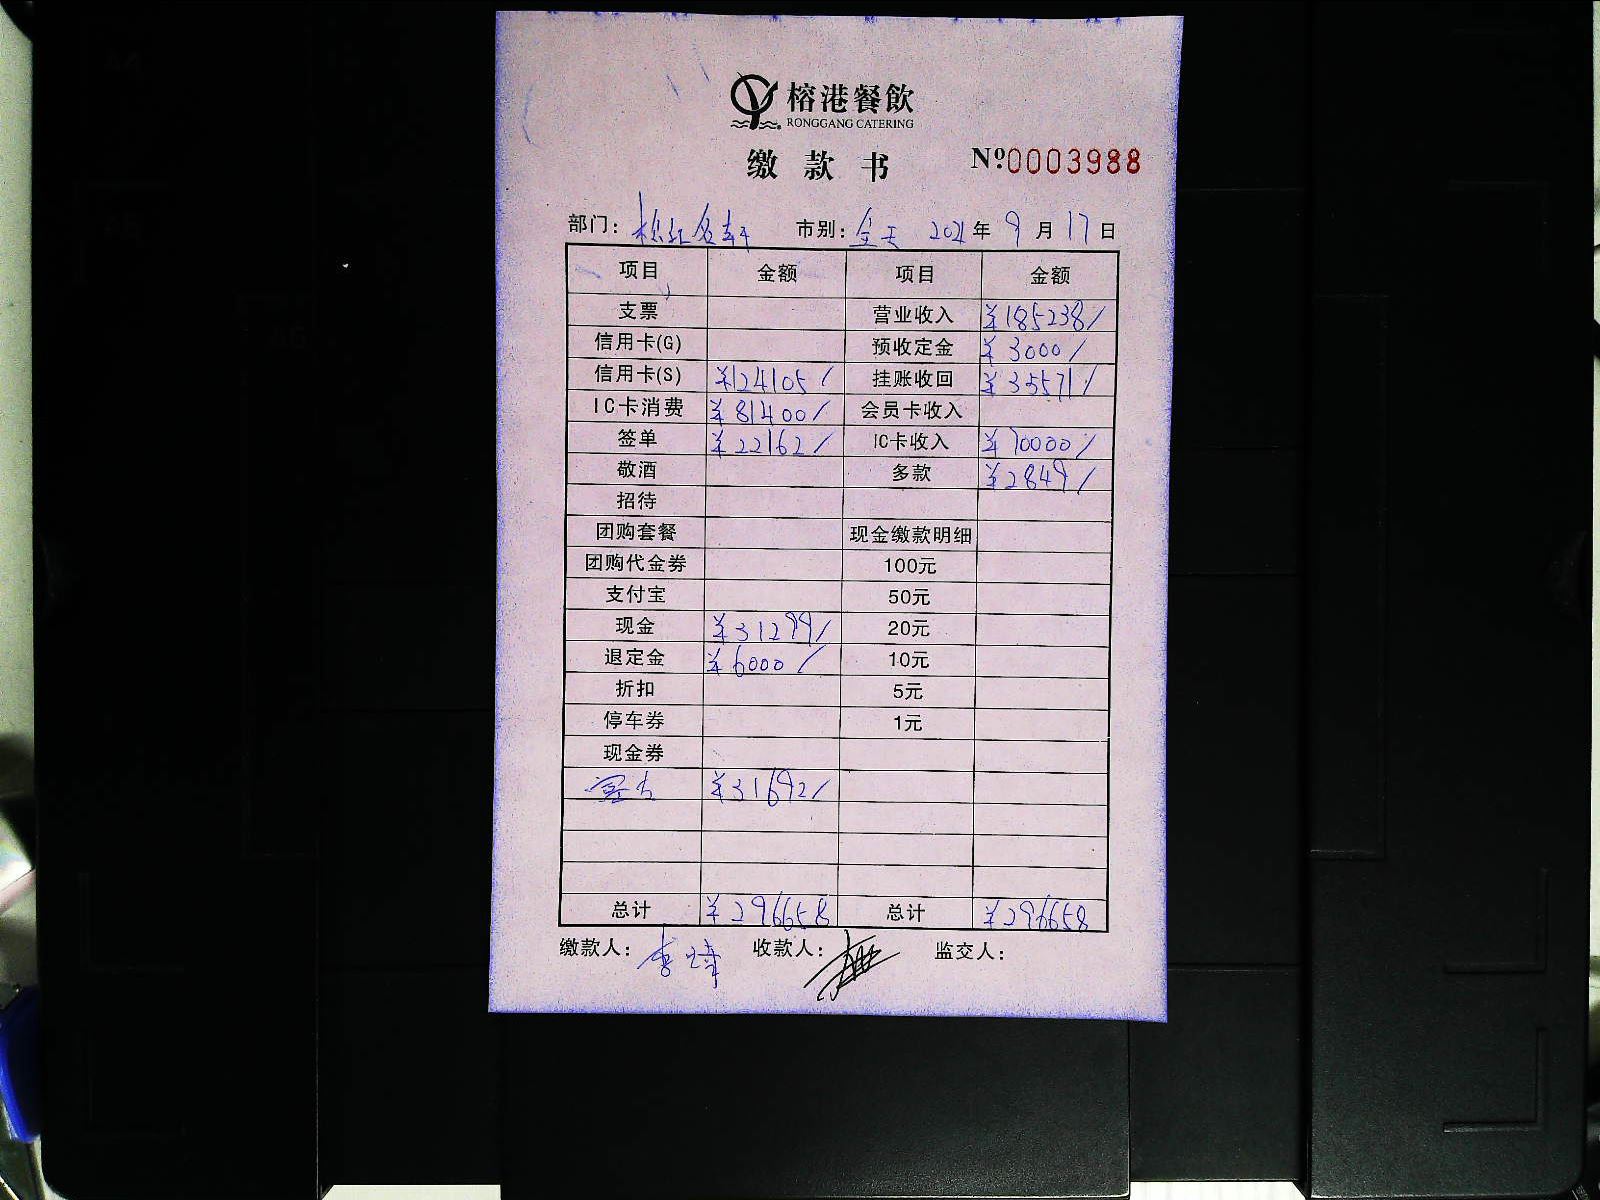 榕港餐飲
RONGGANG CATERING
缴款书 №0003988
部门: 松江名轩 市别: 全天 2021年9月17日
项目 金额 项目 金额
支票 营业收入 ¥185238/
信用卡(G) 预收定金 ¥3000/
信用卡(S) ¥124105/ 挂账收回 ¥35571/
IC卡消费 ¥81400/ 会员卡收入
签单 ¥22162/ IC卡收入 ¥70000/
敬酒 多款 ¥2849/
招待
团购套餐 现金缴款明细
团购代金券 100元
支付宝 50元
现金 ¥31299/ 20元
退定金 ¥6000/ 10元
折扣 5元
停车券 1元
现金券
¥31692/
总计 ¥296658 总计 ¥296658
缴款人: 李 收款人: 监交人: